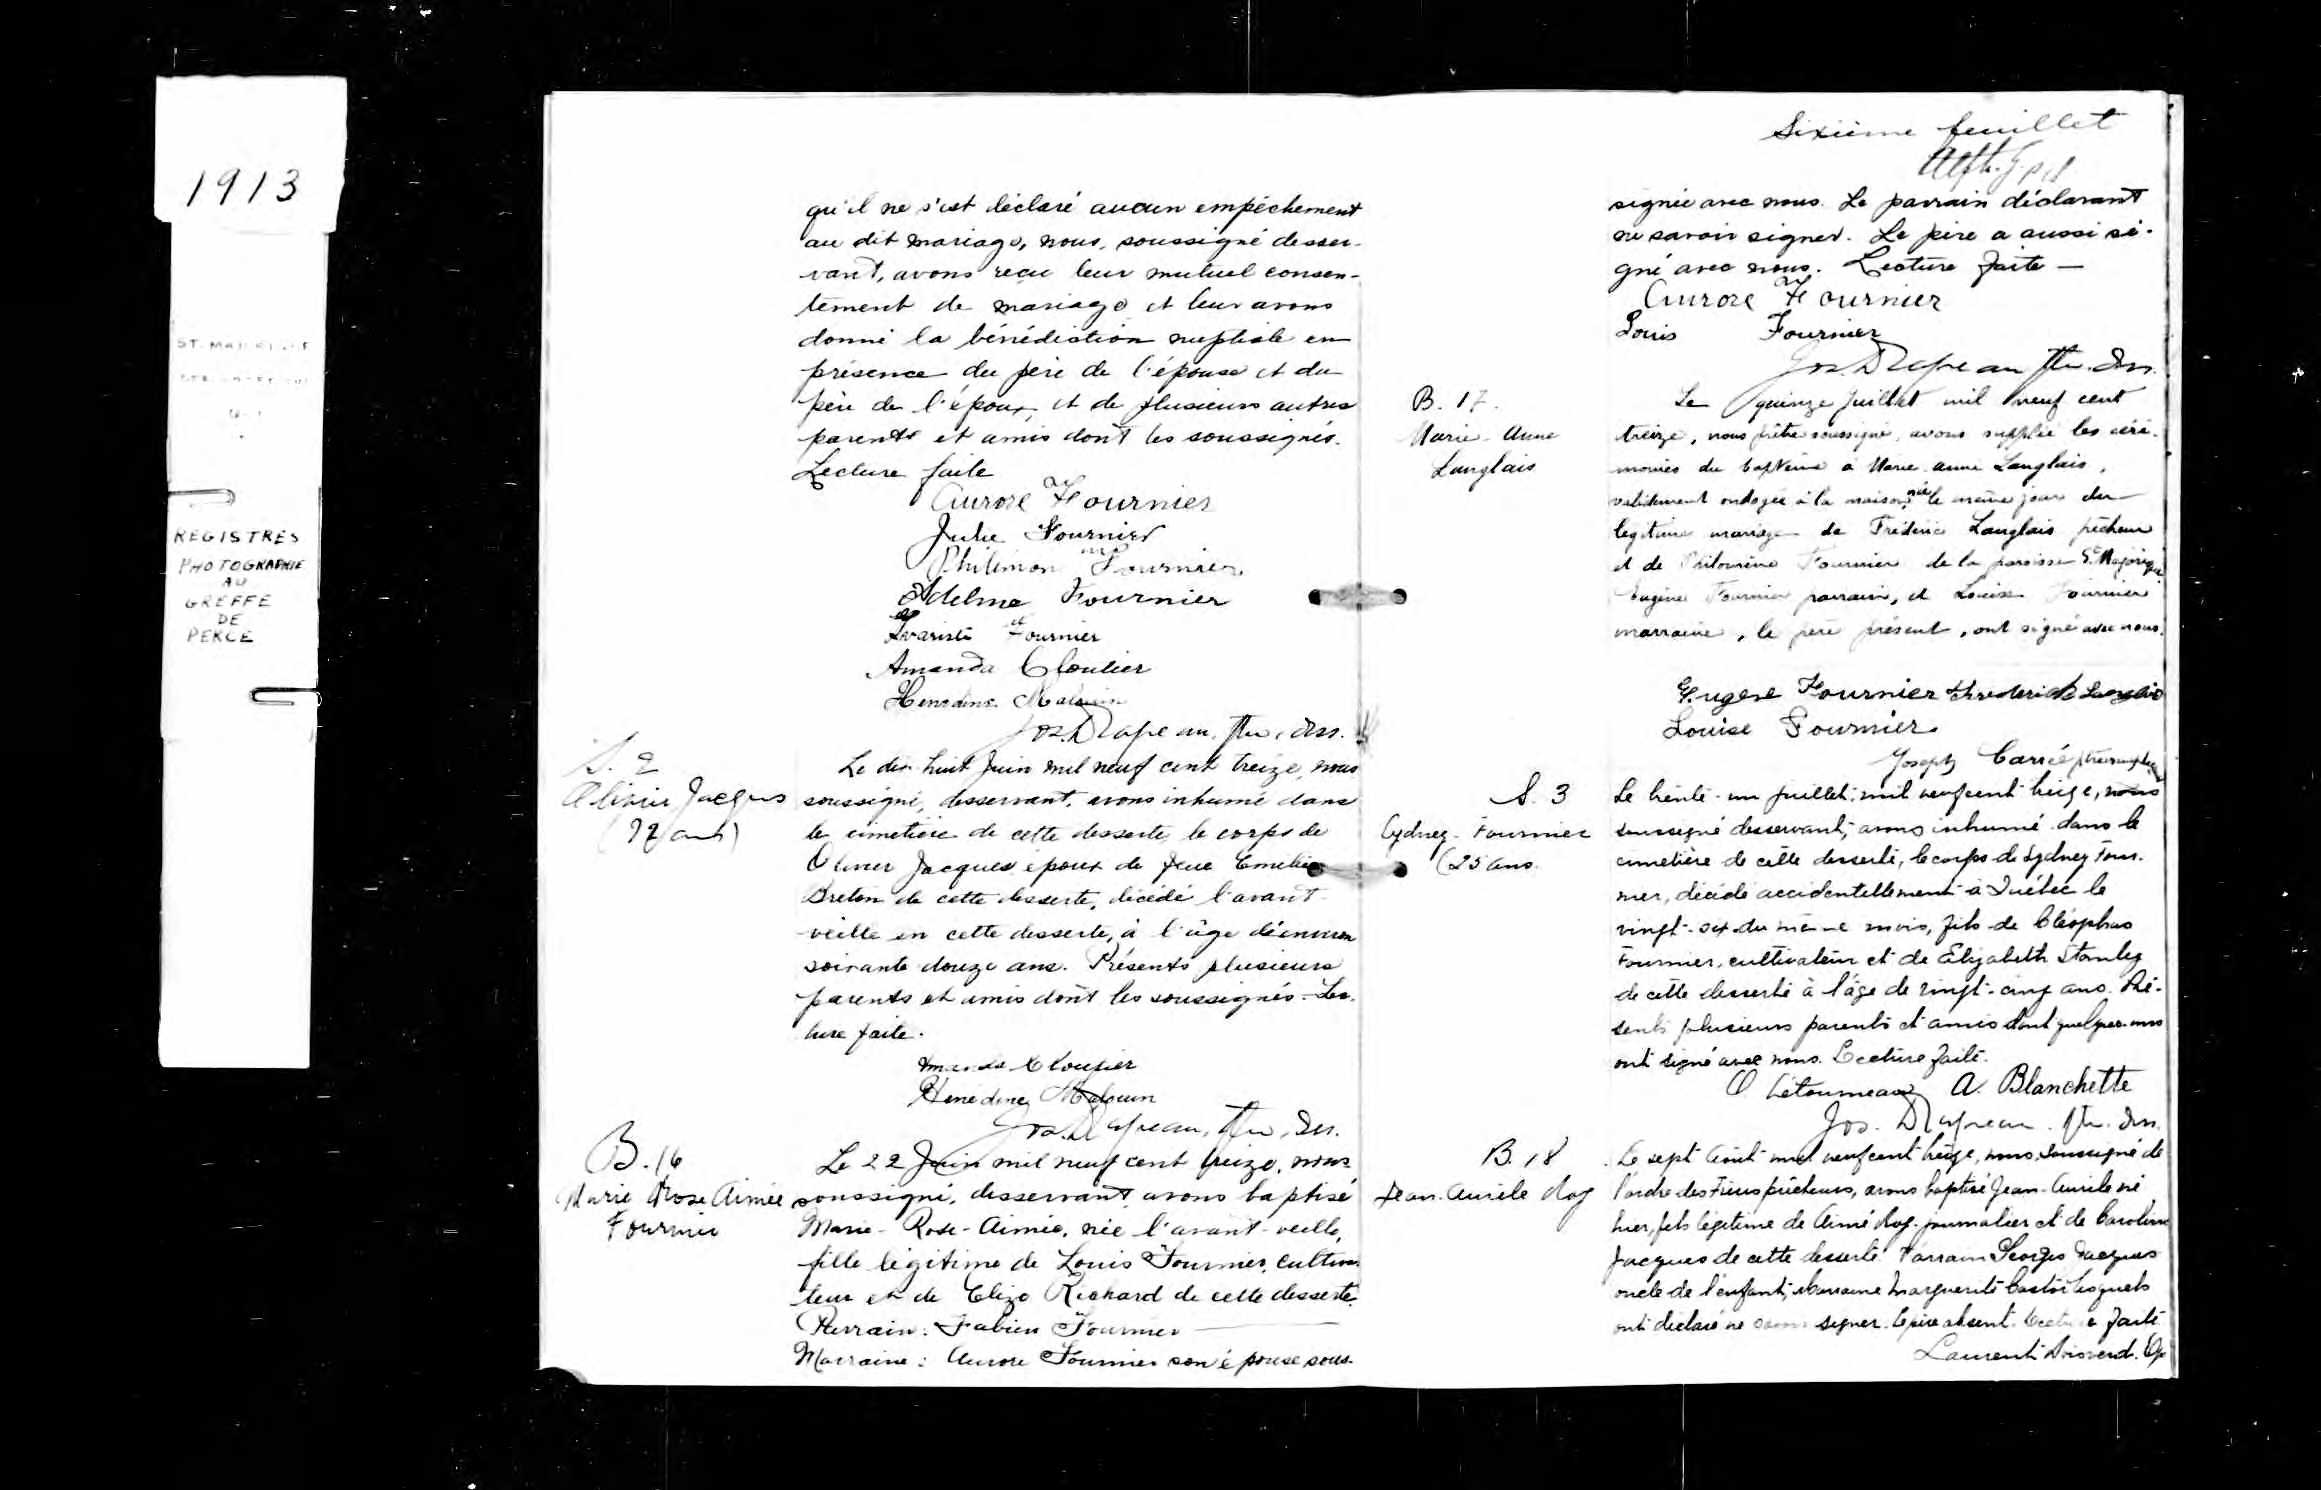 1913
REGISTRES
PHOTOGRAPHIE
AU
GREFFE
DE
PERCE
qu'il ne s'est déclaré aucun empêchement
au dit mariage, nous, soussigné desser-
vant, avons reçu leur mutuel consen-
tement de mariage et leur avons
donné la bénédiction nuptiale en
présence du père de l'épouse et du
père de l'époux et de plusieurs autres
parents et amis dont les soussignés.
Lecture faite
Aurore Fournier
Julie Fournier
Philimon Fournier
Adelme Fournier
Evariste Fournier
Amanda Cloutier
Henedine Malouin
Jos. Drapeau, Ptre, Des.
S. 2
Olivier Jacques
(72 ans)
Le dix huit Juin mil neuf cent treize, nous
soussigné, desservant, avons inhumé dans
le cimetière de cette desserte, le corps de
Olivier Jacques époux de feue Emélie
Breton de cette desserte, décédé l'avant-
veille en cette desserte, à l'âge d'environ
soixante douze ans. Présents plusieurs
parents et amis dont les soussignés - Lec-
ture faite.
Amanda Cloutier
Henedine Malouin
Jos. Drapeau, Ptre, Des.
B. 16
Marie Rose Aimée
Fournier
Le 22 Juin mil neuf cent treize, nous
soussigné, desservant avons baptisé
Marie-Rose-Aimée, née l'avant-veille,
fille légitime de Louis Fournier, cultiva
teur et de Eliza Richard de cette desserte.
Parrain: Fabien Fournier
Marraine: Aurore Fournier son épouse sous-
Sixième feuillet
signée avec nous. Le parrain déclarant
ne savoir signer. Le père a aussi si-
gné avec nous. Lecture faite —
Aurore Fournier
Louis Fournier
Jos. Drapeau Ptre. Des.
B. 17.
Marie-Anne
Langlais
Le quinze juillet mil neuf cent
treize, nous prêtre soussigné, avons supplée les céré-
monies du baptême à Marie-anne Langlais,
validement ondoyée à la maison, née le même jour du
legitime mariage de Fréderic Langlais pêcheur
et de Philomène Fournier de la paroisse St Majorique
Eugène Fournier parrain, et Louise Fournier
marraine, le père présent, ont signé avec nous.
Eugene Fournier Frederick Langlais
Louise Fournier
Joseph Carré ptre
S. 3
Sydney Fournier
(25 ans.
Le trente-un juillet, mil neuf cent treize, nous
soussigné desservant, avons inhumé dans le
cimetière de cette desserte, le corps de Sydney Four-
nier, décédé accidentellement à Québec le
vingt-six du même mois, fils de Cléophas
Fournier, cultivateur et de Elizabeth Stanley
de cette desserte à l'âge de vingt-cinq ans. Pré-
sents plusieurs parents et amis dont quelques-uns
ont signé avec nous. Lecture faite.
O Letourneau A. Blanchette
Jos. Drapeau. Ptre. Des.
B. 18
Jean-Aurèle Roy
Le sept Août mil neuf cent treize, nous, soussigné de
l'ordre des Frères prêcheurs, avons baptisé Jean-Aurèle né
hier, fils légitime de Aimé Roy journalier et de Caroline
Jacques de cette desserte. Parrain Georges Jacques
oncle de l'enfant, Marraine Marguerite Castor lesquels
ont déclaré ne savoir signer. Le père absent. Lecture faite